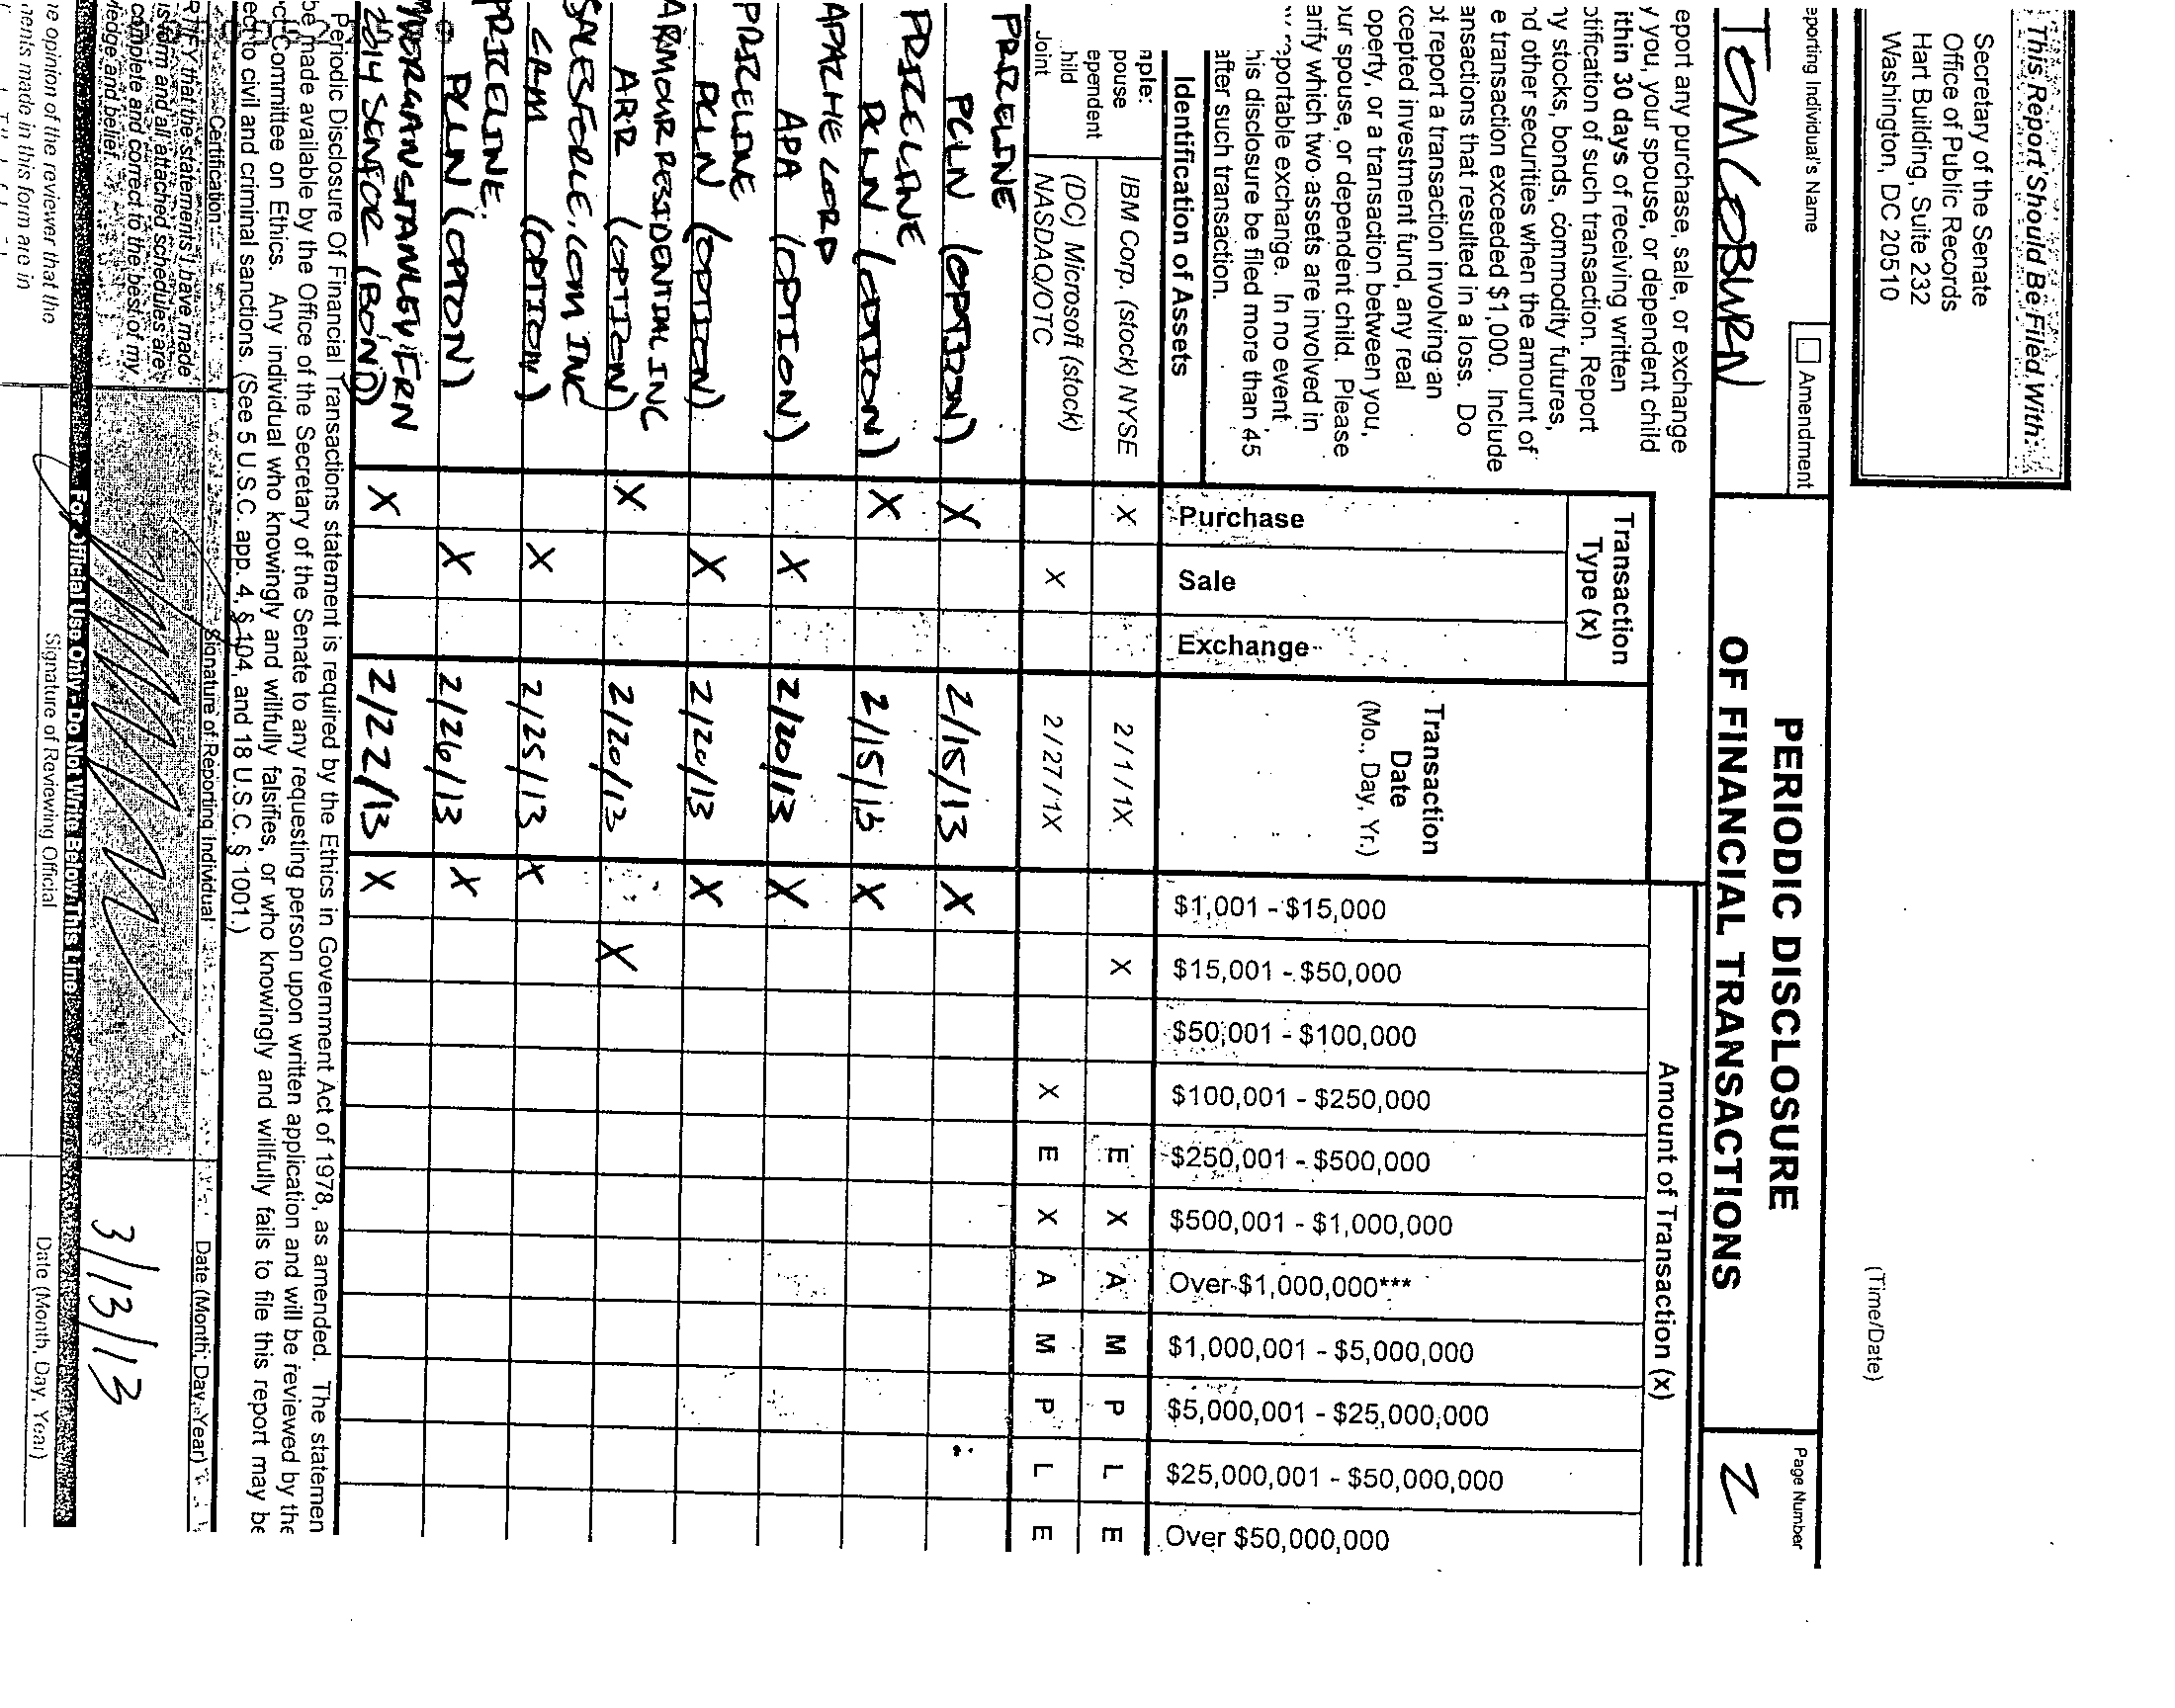 This Report Should Be Filed With:
Secretary of the Senate
Office of Public Records
Hart Building, Suite 232
Washington, DC 20510
(Time/Date)
eporting Individual's Name
Amendment
TOM COBURN
PERIODIC DISCLOSURE
OF FINANCIAL TRANSACTIONS
Page Number
2
eport any purchase, sale, or exchange
y you, your spouse, or dependent child
ithin 30 days of receiving written
otification of such transaction. Report
ny stocks, bonds, commodity futures,
nd other securities when the amount of
e transaction exceeded $1,000. Include
ansactions that resulted in a loss. Do
ot report a transaction involving an
xcepted investment fund, any real
operty, or a transaction between you,
our spouse, or dependent child. Please
arify which two assets are involved in
reportable exchange. In no event
his disclosure be filed more than 45
after such transaction.
Transaction
Type (x)
Transaction
Date
(Mo., Day, Yr.)
Amount of Transaction (x)
Identification of Assets
Purchase
Sale
Exchange
$1,001 - $15,000
$15,001 - $50,000
$50,001 - $100,000
$100,001 - $250,000
$250,001 - $500,000
$500,001 - $1,000,000
Over $1,000,000***
$1,000,001 - $5,000,000
$5,000,001 - $25,000,000
$25,000,001 - $50,000,000
Over $50,000,000
mple:
pouse
ependent
hild
Joint
IBM Corp. (stock) NYSE X 2/1/1X X E X A M P L E
(DC) Microsoft (stock) NASDAQ/OTC X 2/27/1X X E X A M P L E
PRICELINE
PCLN (OPTION) X 2/15/13 X
PRICELINE
PCLN (OPTION) X 2/15/13 X
APACHE CORP
APA (OPTION) X 2/20/13 X
PRICELINE
PCLN (OPTION) X 2/20/13 X
ARMOUR RESIDENTIAL INC
ARR (OPTION) X 2/20/13 X
SALESFORCE.COM INC
CRM (OPTION) X 2/25/13 X
PRICELINE.
PCLN (OPTON) X 2/26/13 X
MORGAN STANLEY
2014 SENIOR (BOND) X 2/22/13 X
Periodic Disclosure Of Financial Transactions statement is required by the Ethics in Government Act of 1978, as amended. The statemen
be made available by the Office of the Secretary of the Senate to any requesting person upon written application and will be reviewed by the
ct Committee on Ethics. Any individual who knowingly and willfully falsifies, or who knowingly and willfully fails to file this report may be
ect to civil and criminal sanctions. (See 5 U.S.C. app. 4, § 104, and 18 U.S.C. § 1001.)
Certification
Signature of Reporting Individual
Date (Month, Day, Year)
RTIFY that the statements I have made
is form and all attached schedules are
complete and correct to the best of my
ledge and belief.
3/13/13
For Official Use Only - Do Not Write Below This Line
he opinion of the reviewer that the
ments made in this form are in
Signature of Reviewing Official
Date (Month, Day, Year)